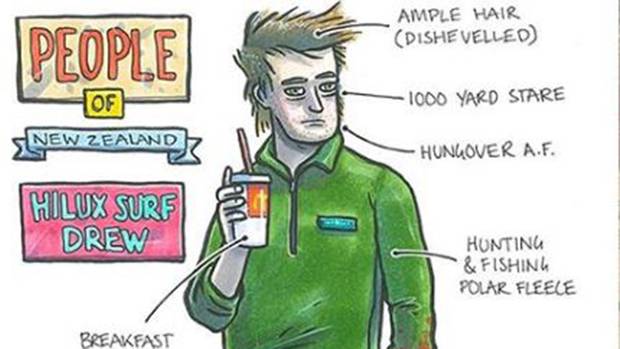 PEOPLE
OF
NEW ZEALAND
HILUX SURF
DREW
AMPLE HAIR
(DISHEVELLED)
1000 YARD STARE
HUNGOVER A.F.
HUNTING
& FISHING
POLAR FLEECE
BREAKFAST